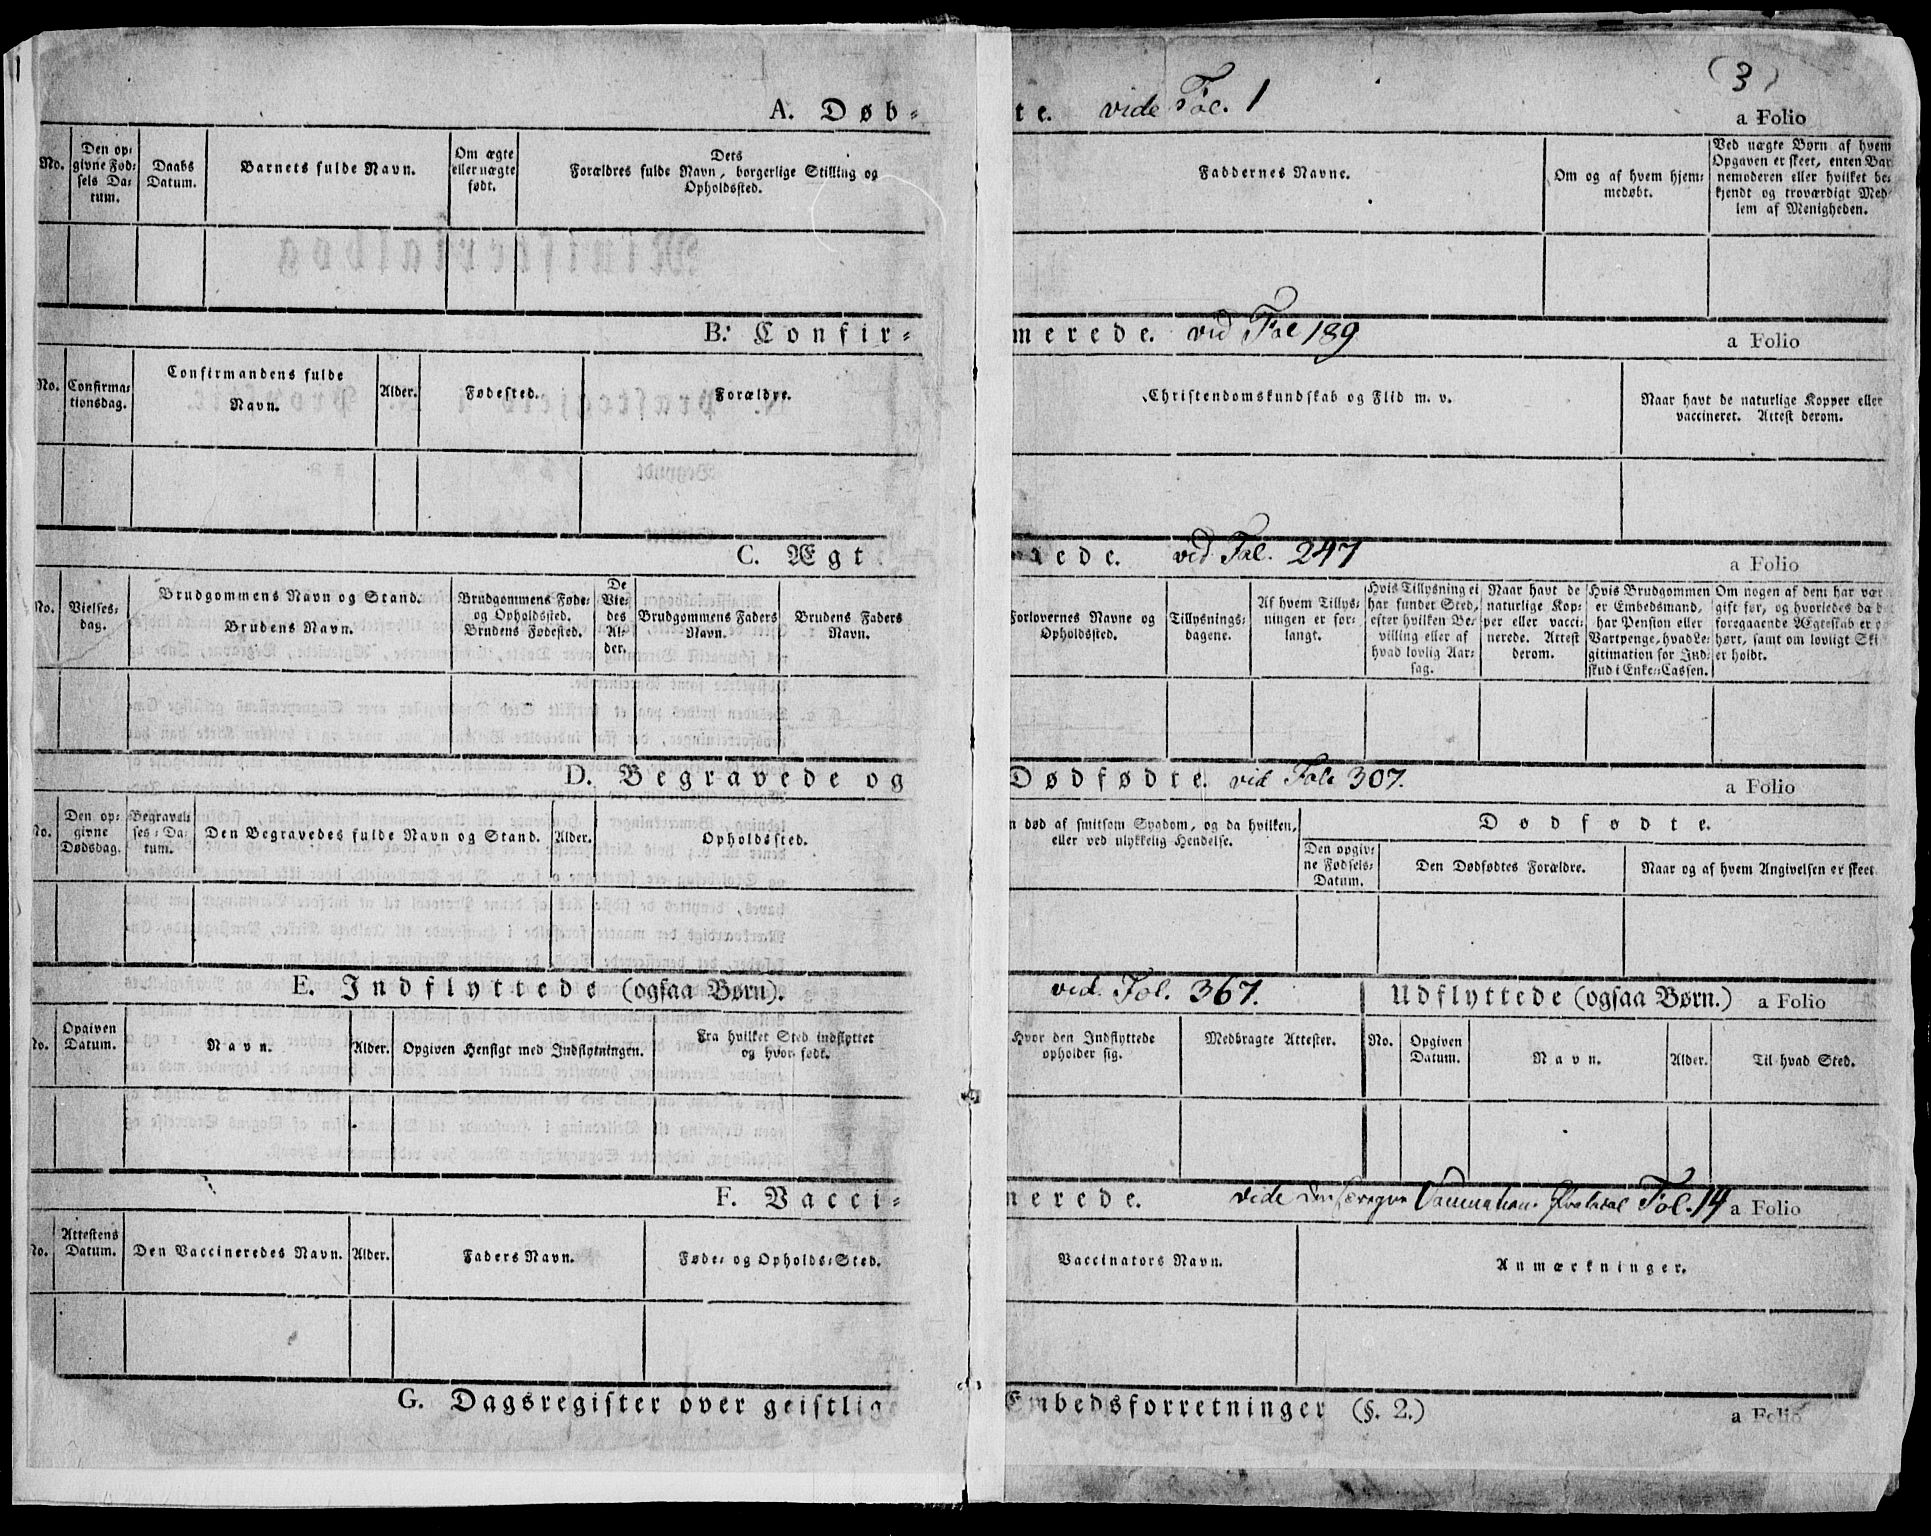 (3)
A. Døb-
te. vide Fol. 1
a Folio
No.
Den op-
givne Fød-
sels Da-
tum.
Daabs
Datum.
Barnets fulde Navn.
Om ægte
eller uægte
født.
Dets
Forældres fulde Navn, borgerlige Stilling og
Opholdssted.
Faddernes Navne.
Om og af hvem hjem-
medøbt.
Ved uægte Børn af hvem
Opgaven er skeet, enten Bar
nemoderen eller hvilket be-
kjendt og troværdigt Med
lem af Menigheden.
B. Confir-
merede. vid Fol 189
a Folio
No.
Confirma-
tionsdag.
Confirmandens fulde
Navn.
Alder.
Fødested.
Forældre.
Christendomskundskab og Flid m. v.
Naar havt de naturlige Kopper eller
vaccineret. Attest derom.
C. Ægt
ede. vid Fol. 247
a Folio
No.
Vielses-
dag.
Brudgommens Navn og Stand.
Brudens Navn.
Brudgommens Føde-
og Opholdssted.
Brudens Fødested.
De
Vie-
des
Al-
der.
Brudgommens Faders
Navn.
Brudens Faders
Navn.
Forlovernes Navne og
Opholdssted.
Tillysnings-
dagene.
Af hvem Tillys-
ningen er for-
langt.
Hvis Tillysning ei
har fundet Sted,
efter hvilken Be-
villing eller af
hvad lovlig Aar-
sag.
Naar havt de
naturlige Kop-
per eller vacci-
nerede. Attest
derom.
Hvis Brudgommen
er Embedsmand,
har Pension eller
Vartpenge, hvad Le-
gitimation for Ind-
skud i Enke-Cassen.
Om nogen af dem har vær
gift før, og hvorledes da d
foregaaende Ægteskab er o
hørt, samt om lovligt Ski
er holdt.
D. Begravede og
Dødfødte. vid Fol. 307.
a Folio
No.
Den op-
givne
Dødsdag.
Begravel-
ses-Da-
tum.
Den Begravedes fulde Navn og Stand.
Alder.
Opholdssted.
n død af smitsom Sygdom, og da hvilken,
eller ved ulykkelig Hendelse.
Dødfødte.
Den opgiv-
ne Fødsels-
Datum.
Den Dødfødtes Forældre.
Naar og af hvem Angivelsen er skeet
E. Indflyttede (ogsaa Børn).
vid. Fol. 367.
Udflyttede (ogsaa Børn.) a Folio
No.
Opgiven
Datum.
Navn.
Alder.
Opgiven Hensigt med Indflytningen.
Fra hvilket Sted indflyttet
og hvor født.
Hvor den Indflyttede
opholder sig.
Medbragte Attester.
No.
Opgiven
Datum.
Navn.
Alder.
Til hvad Sted.
F. Vacci-
nerede. vide Fol. 14
a Folio
No.
Attestens
Datum.
Den Vaccineredes Navn.
Alder.
Faders Navn.
Føde- og Opholds-Sted.
Vaccinators Navn.
Anmærkninger.
G. Dagsregister over geistlige
Embedsforretninger (§. 2.)
a Folio